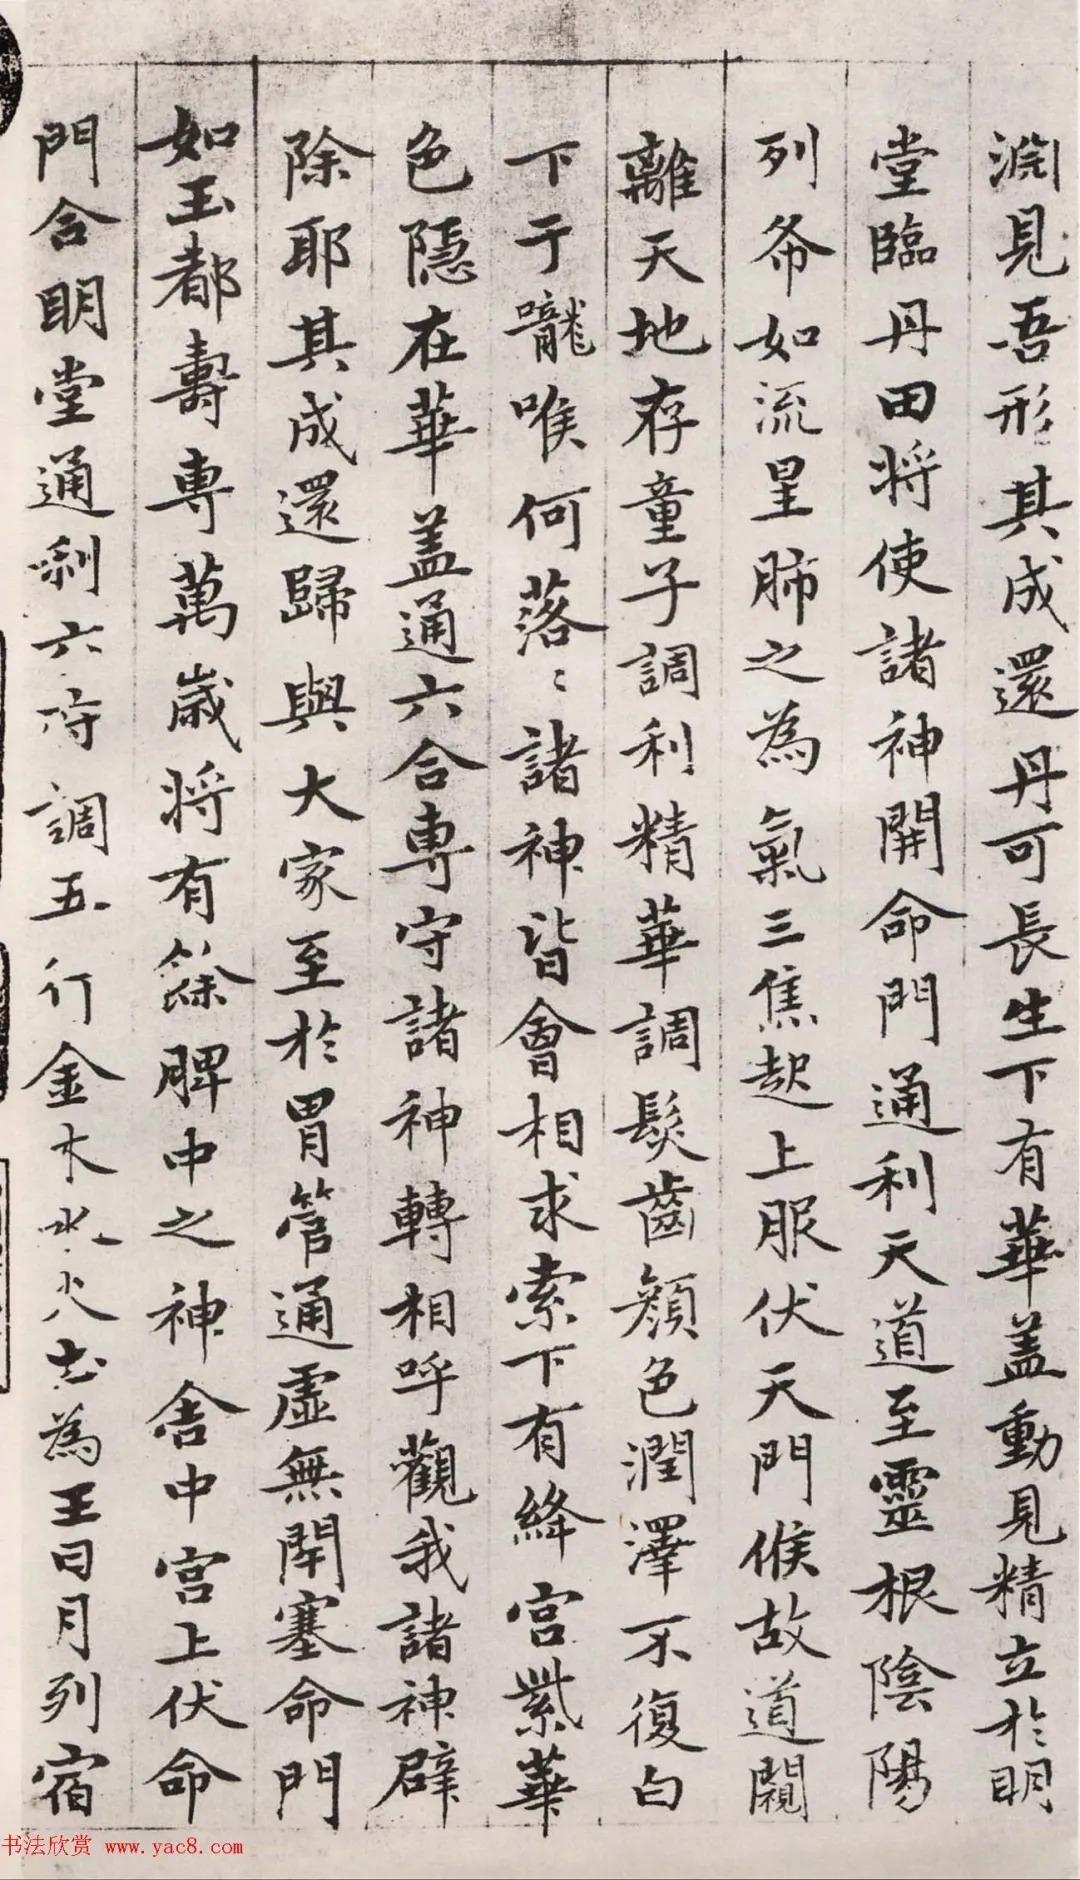 淵見吾形其成還丹可長生下有華盖動見精立於明
堂臨丹田将使諸神開命門通利天道至靈根陰陽
列布如流星肺之為氣三焦起上服伏天門候故道闚
離天地存童子調利精華調髮齒顔色潤澤不復白
下于嚨喉何落〻諸神皆會相求索下有絳宫紫華
色隱在華盖通六合専守諸神轉相呼觀我諸神辟
除耶其成還歸與大家至於胃管通虚無閇塞命門
如玉都壽専萬歳将有餘脾中之神舎中宫上伏命
門合明堂通利六府調五行金木水火土為王日月列宿
书法欣赏 www.yac8.com